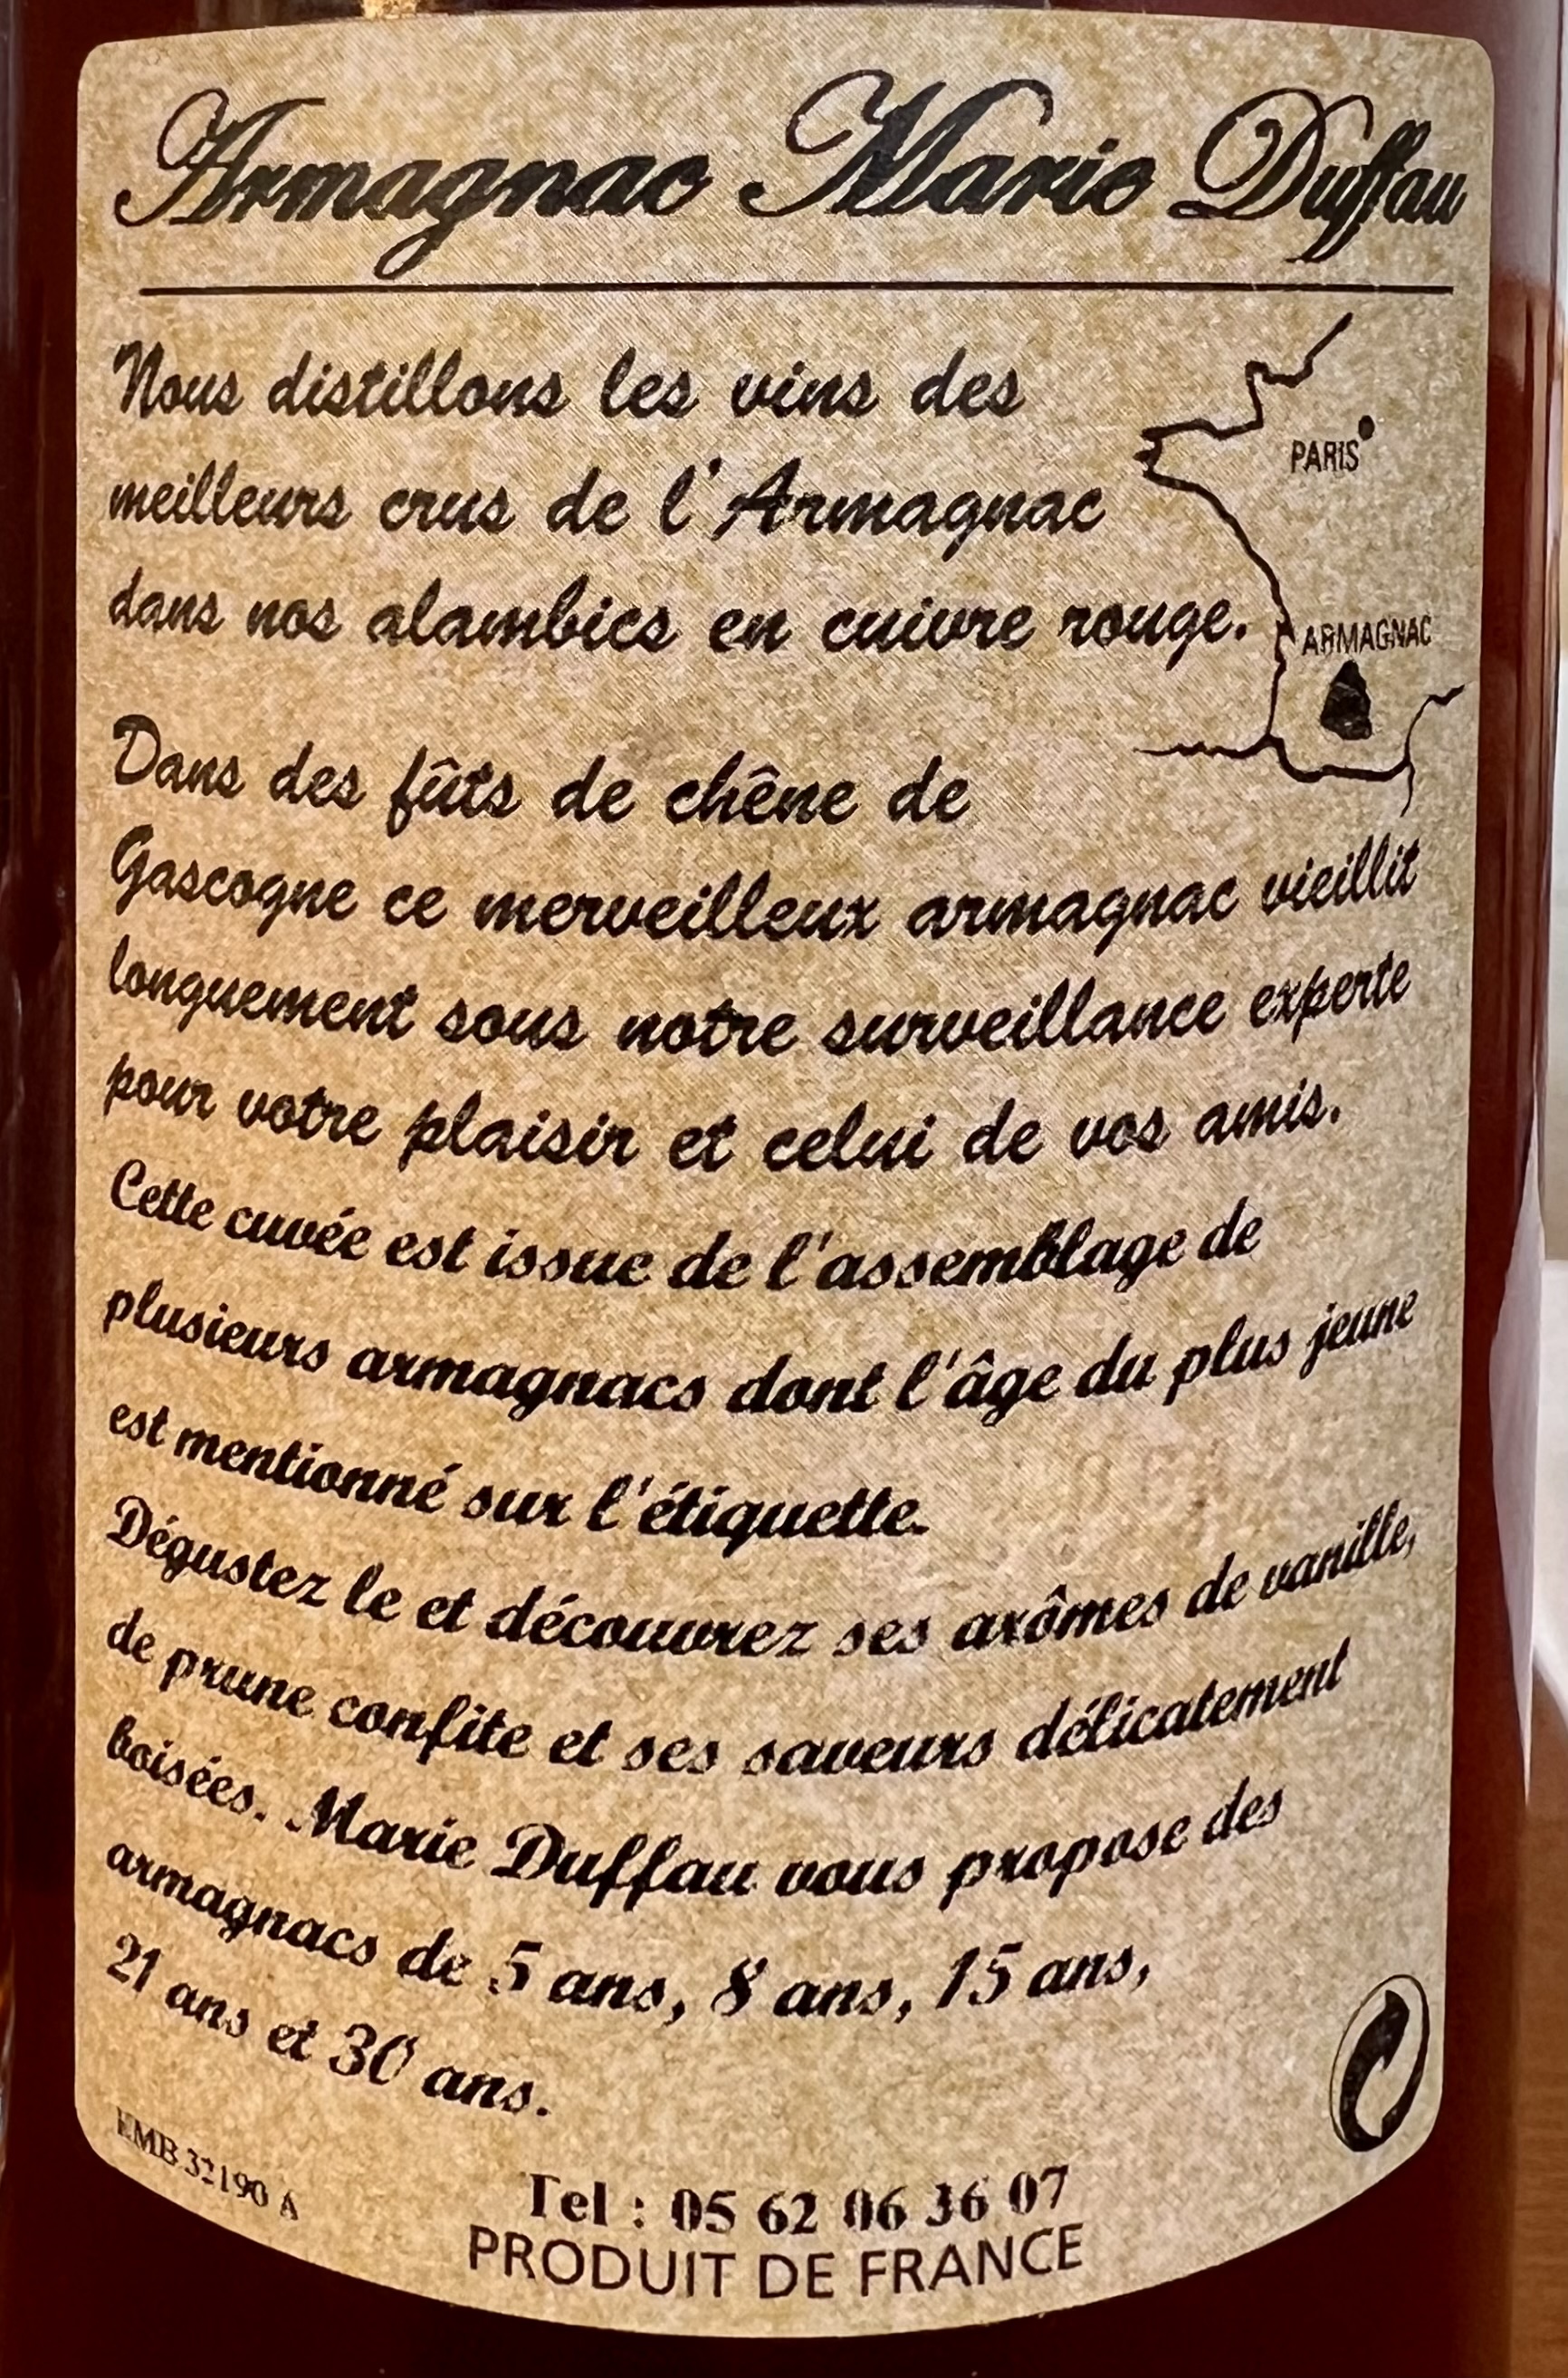 Armagnac Marie Duffau
Nous distillons les vins des
meilleurs crus de l'Armagnac
dans nos alambics en cuivre rouge.
PARIS
ARMAGNAC
Dans des fûts de chêne de
Gascogne ce merveilleux armagnac vieillit
longuement sous notre surveillance experte
pour votre plaisir et celui de vos amis.
Cette cuvée est issue de l'assemblage de
plusieurs armagnacs dont l'âge du plus jeune
est mentionné sur l'étiquette.
Dégustez le et découvrez ses arômes de vanille,
de prune confite et ses saveurs délicatement
boisées. Marie Duffau vous propose des
armagnacs de 5 ans, 8 ans, 15 ans,
21 ans et 30 ans.
EMB 32190 A
Tel : 05 62 06 36 07
PRODUIT DE FRANCE